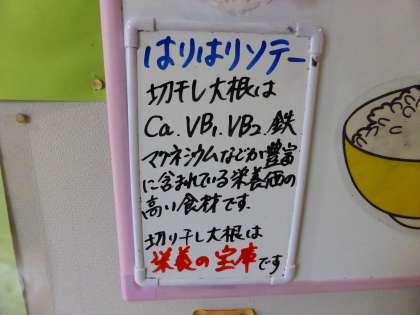 はりはりソテー
切干し大根は
Ca.VB₁.VB₂.鉄
マグネシウムなどが豊富
に含まれている栄養価の
高い食材です.
切り干し大根は
栄養の宝庫です